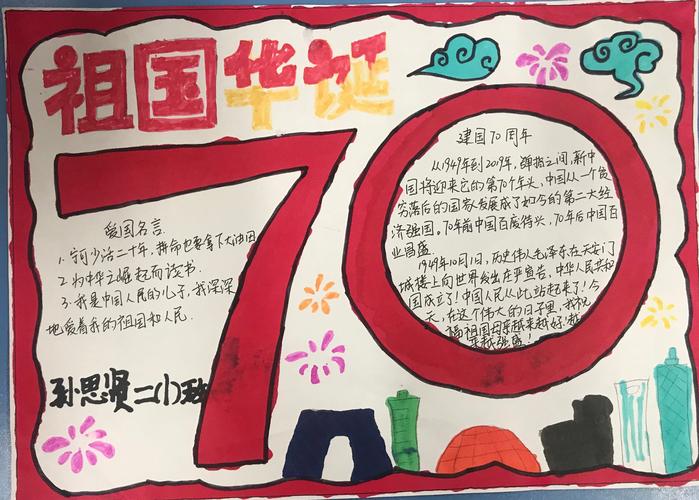 祖国华诞
70
爱国名言
1. 宁可少活二十年，拼命也要拿下大油田
2. 为中华之崛起而读书.
3. 我是中国人民的儿子，我深深
地爱着我的祖国和人民.
孙思贤二(1)班
建国70周年
从1949年到2019年，弹指之间，新中
国将迎来它的第70个年头，中国从一个贫
穷落后的国家发展成了如今的第二大经
济强国。70年前中国百废待兴，70年后中国百
业昌盛
1949年10月1日，历史伟人毛泽东在天安门
城楼上向世界发出庄严宣告，中华人民共和
国成立了！中国人民从此站起来了！今
天，在这个伟大的日子里，我祝
福祖国母亲越来越好，越
来越强盛！